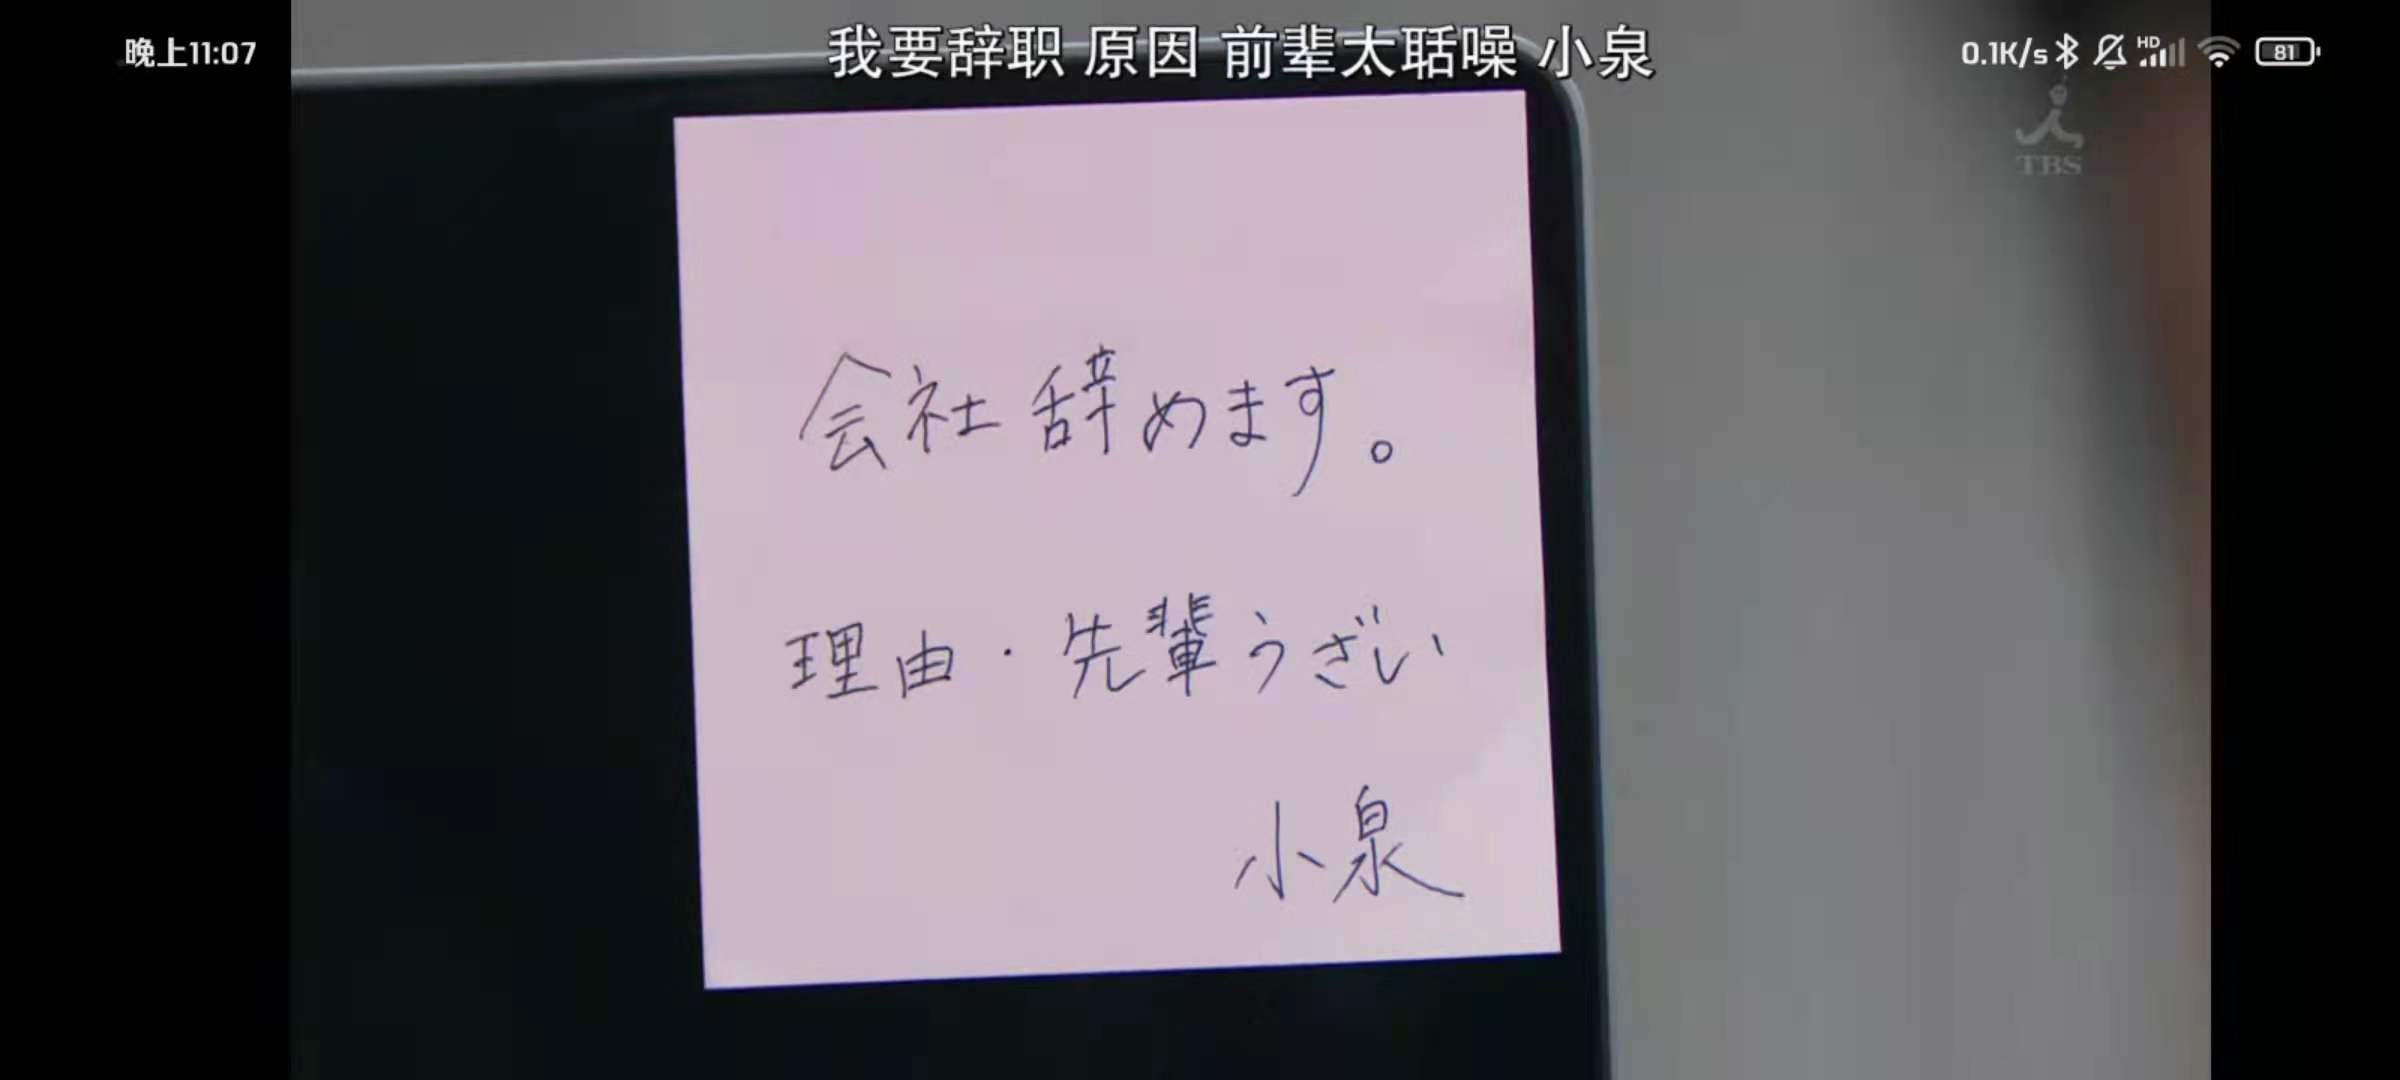 晚上11:07
我要辞职 原因 前辈太聒噪 小泉
0.1K/s HD 81
TBS
会社辞めます。
理由・先輩うざい
小泉